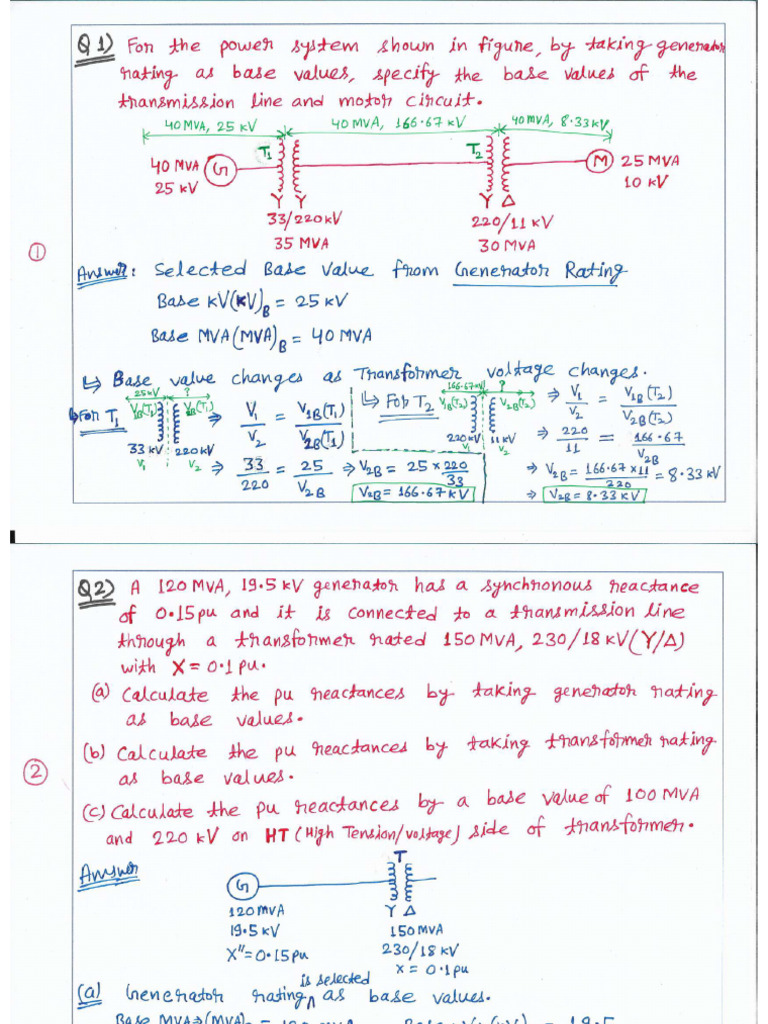 Q1) For the power system shown in figure, by taking generator
rating as base values, specify the base values of the
transmission line and motor circuit.
40 MVA, 25 kV
40 MVA, 166.67 kV
40 MVA, 8.33 kV
T1
T2
40 MVA
25 kV
G
M
25 MVA
10 kV
Y Y
Y Δ
33/220 kV
35 MVA
220/11 kV
30 MVA
①
Answer: Selected Base Value from Generator Rating
Base kV(kV)B = 25 kV
Base MVA(MVA)B = 40 MVA
↳ Base value changes as Transformer voltage changes.
↳ For T1
25 kV ?
V1B(T1) V2B(T1)
33 kV 220 kV
V1 V2
⇒ V1/V2 = V1B(T1)/V2B(T1)
⇒ 33/220 = 25/V2B ⇒ V2B = 25 × 220/33
V2B = 166.67 kV
↳ For T2
166.67 kV ?
V1B(T2) V2B(T2)
220 kV 11 kV
V1 V2
⇒ V1/V2 = V1B(T2)/V2B(T2)
⇒ 220/11 = 166.67/V2B
⇒ V2B = 166.67 × 11/220 = 8.33 kV
⇒ V2B = 8.33 kV
Q2) A 120 MVA, 19.5 kV generator has a synchronous reactance
of 0.15 pu and it is connected to a transmission line
through a transformer rated 150 MVA, 230/18 kV (Y/Δ)
with X = 0.1 pu.
(a) Calculate the pu reactances by taking generator rating
as base values.
(b) Calculate the pu reactances by taking transformer rating
as base values.
②
(c) Calculate the pu reactances by a base value of 100 MVA
and 220 kV on HT (High Tension/voltage) side of transformer.
Answer
G
T
120 MVA
19.5 kV
X" = 0.15 pu
Y Δ
150 MVA
230/18 kV
x = 0.1 pu
(a) Generator rating is selected as base values.